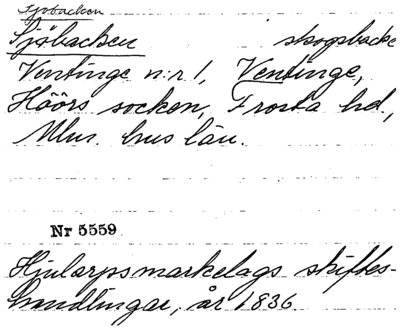 Sjöbacken
Sjöbacken skogsbacke
Ventinge n:r 1, Ventinge,
Höörs socken, Frosta hd,
Mlm. hus län.
Nr 5559
Hjularpsmarkelags skiftes-
handlingar, år 1836